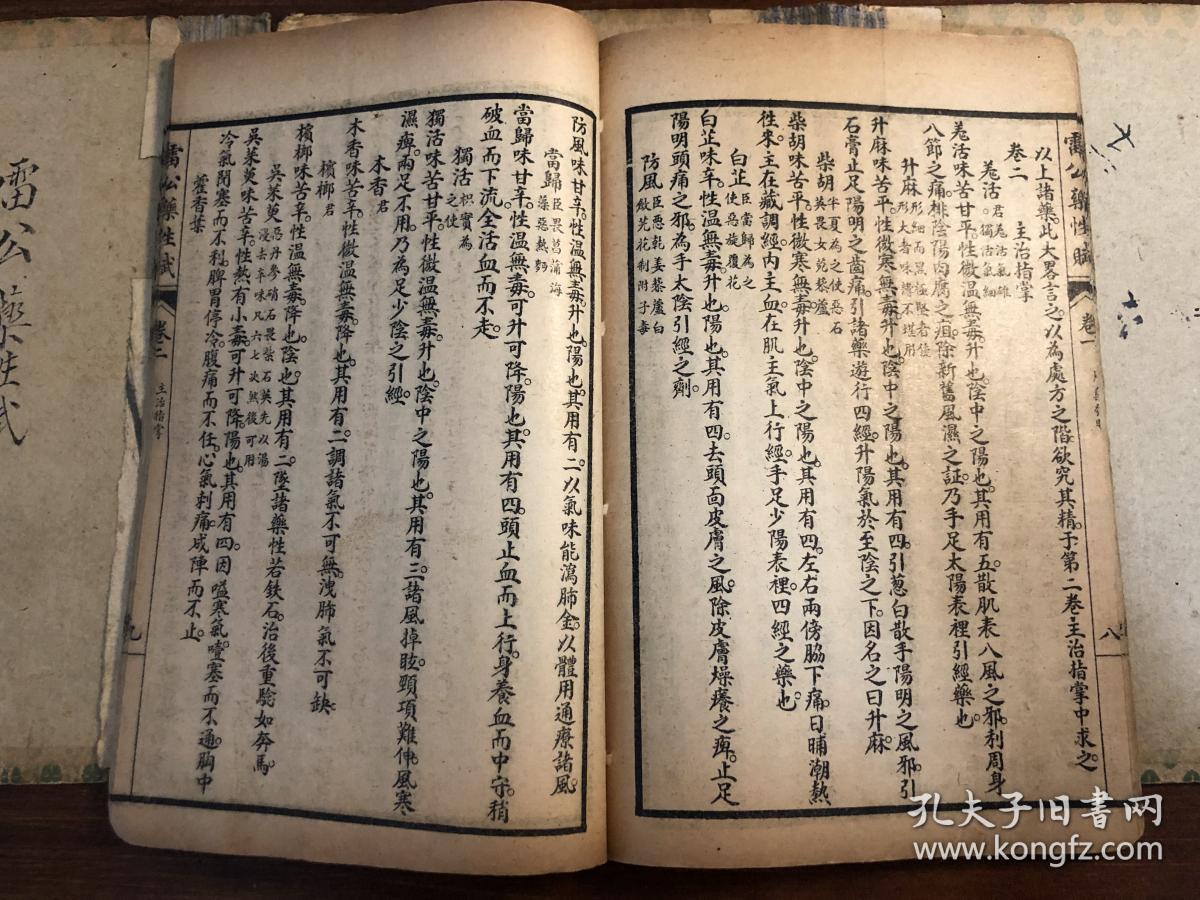 以上諸藥此大畧言之以為處方之階欲究其精于第二卷主治指掌中求之
卷二 主治指掌
羌活 君羌活氣雄獨活氣細
羌活味苦甘平性微温無毒升也陰中之陽也其用有五散肌表八風之邪利周身
八節之痛排陰陽肉腐之疽除新舊風濕之証乃手足太陽表裡引經藥也
升麻 形細而黑極堅者佳形大者味薄不堪用
升麻味苦平性微寒無毒升也陰中之陽也其用有四引葱白散手陽明之風邪引
石膏止足陽明之齒痛引諸藥遊行四經升陽氣於至陰之下因名之曰升麻
柴胡 半夏為之使惡石英畏女菀藜蘆
柴胡味苦平性微寒無毒升也陰中之陽也其用有四左右兩傍脇下痛日晡潮熱
徃來主在藏調經內主血在肌主氣上行經手足少陽表裡四經之藥也
白芷 臣當歸為之使惡旋覆花
白芷味辛性温無毒升也陽也其用有四去頭面皮膚之風除皮膚燥癢之痺止足
陽明頭痛之邪為手太陰引經之劑
防風 臣惡乾姜藜蘆白斂芫花制附子毒
雷公藥性賦 卷一 八
防風味甘辛性温無毒升也陽也其用有二以氣味能瀉肺金以體用通療諸風
當歸 臣畏菖蒲海藻惡熱麪
當歸味甘辛性温無毒可升可降陽也其用有四頭止血而上行身養血而中守稍
破血而下流全活血而不走
獨活 枳實為之使
獨活味苦甘平性微温無毒升也陰中之陽也其用有三諸風掉眩頸項難伸風寒
濕痺兩足不用乃為足少陰之引經
木香 君
木香味苦辛性微温無毒降也其用有二調諸氣不可無洩肺氣不可缺
檳榔 君
檳榔味苦辛性温無毒降也陰也其用有二墜諸藥性若鉄石治後重驗如奔馬
吳茱萸 惡丹參硝石畏紫石英先以湯浸去辛味凡六七次然後可用
吳茱萸味苦辛性熱有小毒可升可降陽也其用有四因嗌寒氣噎塞而不通胸中
冷氣閉塞而不利脾胃停冷腹痛而不任心氣刺痛成陣而不止
藿香葉
雷公藥性賦 卷二 主治指掌 九
雷公藥性賦
六
孔夫子旧书网
www.kongfz.com